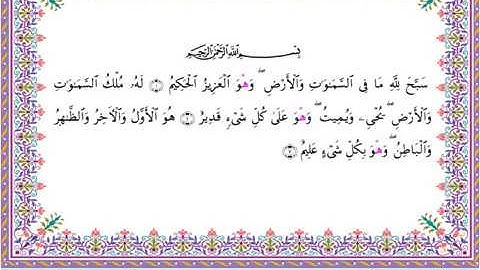 بِسْمِ اللَّهِ الرَّحْمَٰنِ الرَّحِيمِ
سَبَّحَ لِلَّهِ مَا فِى السَّمَٰوَٰتِ وَالْأَرْضِ ۖ وَهُوَ الْعَزِيزُ الْحَكِيمُ ﴿١﴾ لَهُۥ مُلْكُ السَّمَٰوَٰتِ
وَالْأَرْضِ ۖ يُحْىِۦ وَيُمِيتُ ۖ وَهُوَ عَلَىٰ كُلِّ شَىْءٍ قَدِيرٌ ﴿٢﴾ هُوَ الْأَوَّلُ وَالْآخِرُ وَالظَّٰهِرُ
وَالْبَاطِنُ ۖ وَهُوَ بِكُلِّ شَىْءٍ عَلِيمٌ ﴿٣﴾